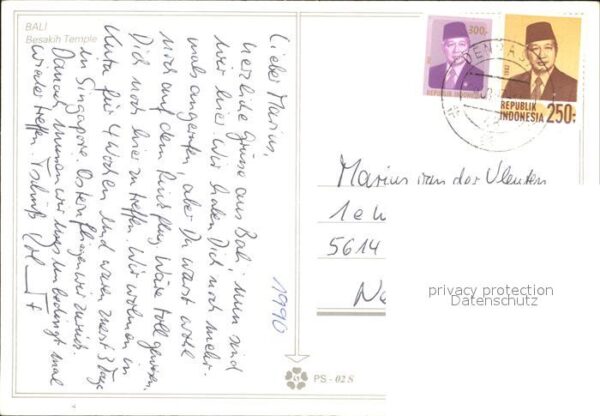 BALI
Besakih Temple
Liebe Marius,
herzliche Grüsse aus Bali! Nun sind
wir hier. Wir haben Dich noch mehr-
mals angerufen, aber Du warst wohl
noch auf dem Rückflug. Wäre toll gewesen,
Dich noch hier zu treffen. Wir wohnen in
Kuta für 4 Wochen und waren zuerst 3 Tage
in Singapore. Ostern fliegen wir zurück.
Danach müssen wir uns unbedingt mal
wieder treffen. Tschüß
1990
300,-
REPUBLIK INDONESIA
1982
REPUBLIK
INDONESIA
250,-
Marius van der Vleuten
1e W
5614
Ne
privacy protection
Datenschutz
PS - 02 S